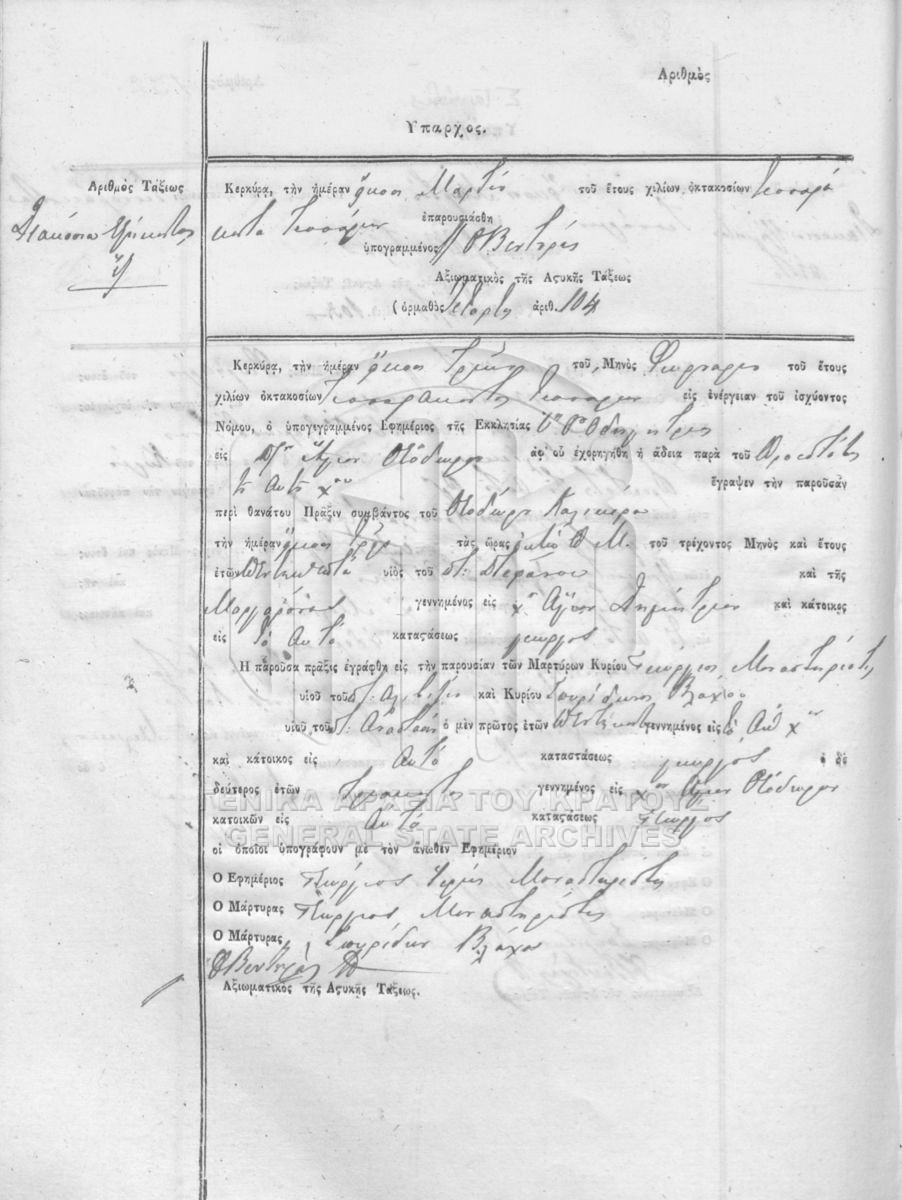 Αριθμὸς
Υπαρχος.
Αριθμὸς Τάξεως
Διακόσια
Κερκύρα, τὴν ἡμέραν εἴκοσι Μαρτίου τοῦ ἔτους χιλίων ὀκτακοσίων τεσσαρά
κοντα τεσσάρων ἐπαρουσιάσθη
ὑπογραμμένος Βεντυρας
Αξιωματικὸς τῆς Αςυκῆς Τάξεως
(ὁρμαθὸς Τέταρτος ἀριθ. 104
Κερκύρα, τὴν ἡμέραν εἴκοσι τρεῖς τοῦ Μηνὸς Φευρουαρίου τοῦ ἔτους
χιλίων ὀκτακοσίων τεσσαράκοντα τεσσάρων εἰς ἐνέργειαν τοῦ ἰσχύοντος
Νόμου, ὁ ὑπογιγραμμένος Εφημέριος τῆς Εκκλησίας Οδηγητρίας
εἰς Ἅγιον Θεόδωρον ἀφ᾽ οὗ ἐχορηγήθη ἡ ἄδεια παρὰ τοῦ Προεστῶτος
ἔγραψεν τὴν παροῦσαν
περὶ θανάτου Πρᾶξιν συμβάντος τοῦ Θεοδώρου Καλικέρη
τὴν ἡμέραν εἴκοσι τρεῖς τὰς ὥρας ὀκτώ Π. Μ. τοῦ τρέχοντος Μηνὸς καὶ ἔτους
ἐτῶν υἱὸς τοῦ Στεφάνου καὶ τῆς
Μαργαρόνας γεννημένος εἰς χ Ἅγιον Δημήτριον καὶ κάτοικος
εἰς τὸ Αυτό κατας̓άσεως γεωργός
Η παροῦσα πρᾶξις ἐγράφθη εἰς τὴν παρουσίαν τῶν Μαρτύρων Κυρίου Γεώργιος Μοναστηριότης
υἱοῦ τοῦ Αλεβίζου καὶ Κυρίου Σπυρίδωνος Βλάχου
υἱοῦ τοῦ Αναστάση ὁ μὲν πρῶτος ἐτῶν γεννημένος εἰς τὸ Αυτ χ
καὶ κάτοικος εἰς Αυτό καταστάσεως γεωργός ὁ δὲ
δεύτερος ἐτῶν γεννημένος εἰς χ Ἅγιον Θεόδωρον
κατοικῶν εἰς Αυτό καταςάσεως Γεωργός
ΓΕΝΙΚΑ ΑΡΧΕΙΑ ΤΟΥ ΚΡΑΤΟΥΣ
GENERAL STATE ARCHIVES
οἱ ὁποῖοι ὑπογράφουν μὲ τὸν ἄνωθεν Εφημέριον
Ο Εφημέριος Γεώργιος Ἱερεὺς Μοναστηριότης
Ο Μάρτυρας Γεώργιος Μοναστηριότης
Ο Μάρτυρας Σπυρίδων Βλάχος
Βεντυρας
Αξιωματικὸς τῆς Αςυκῆς Τάξεως.